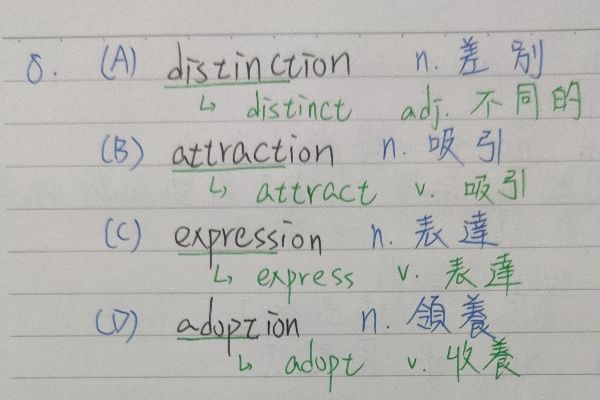 8. (A) distinction n. 差別
↳ distinct adj. 不同的
(B) attraction n. 吸引
↳ attract v. 吸引
(C) expression n. 表達
↳ express v. 表達
(D) adoption n. 領養
↳ adopt v. 收養